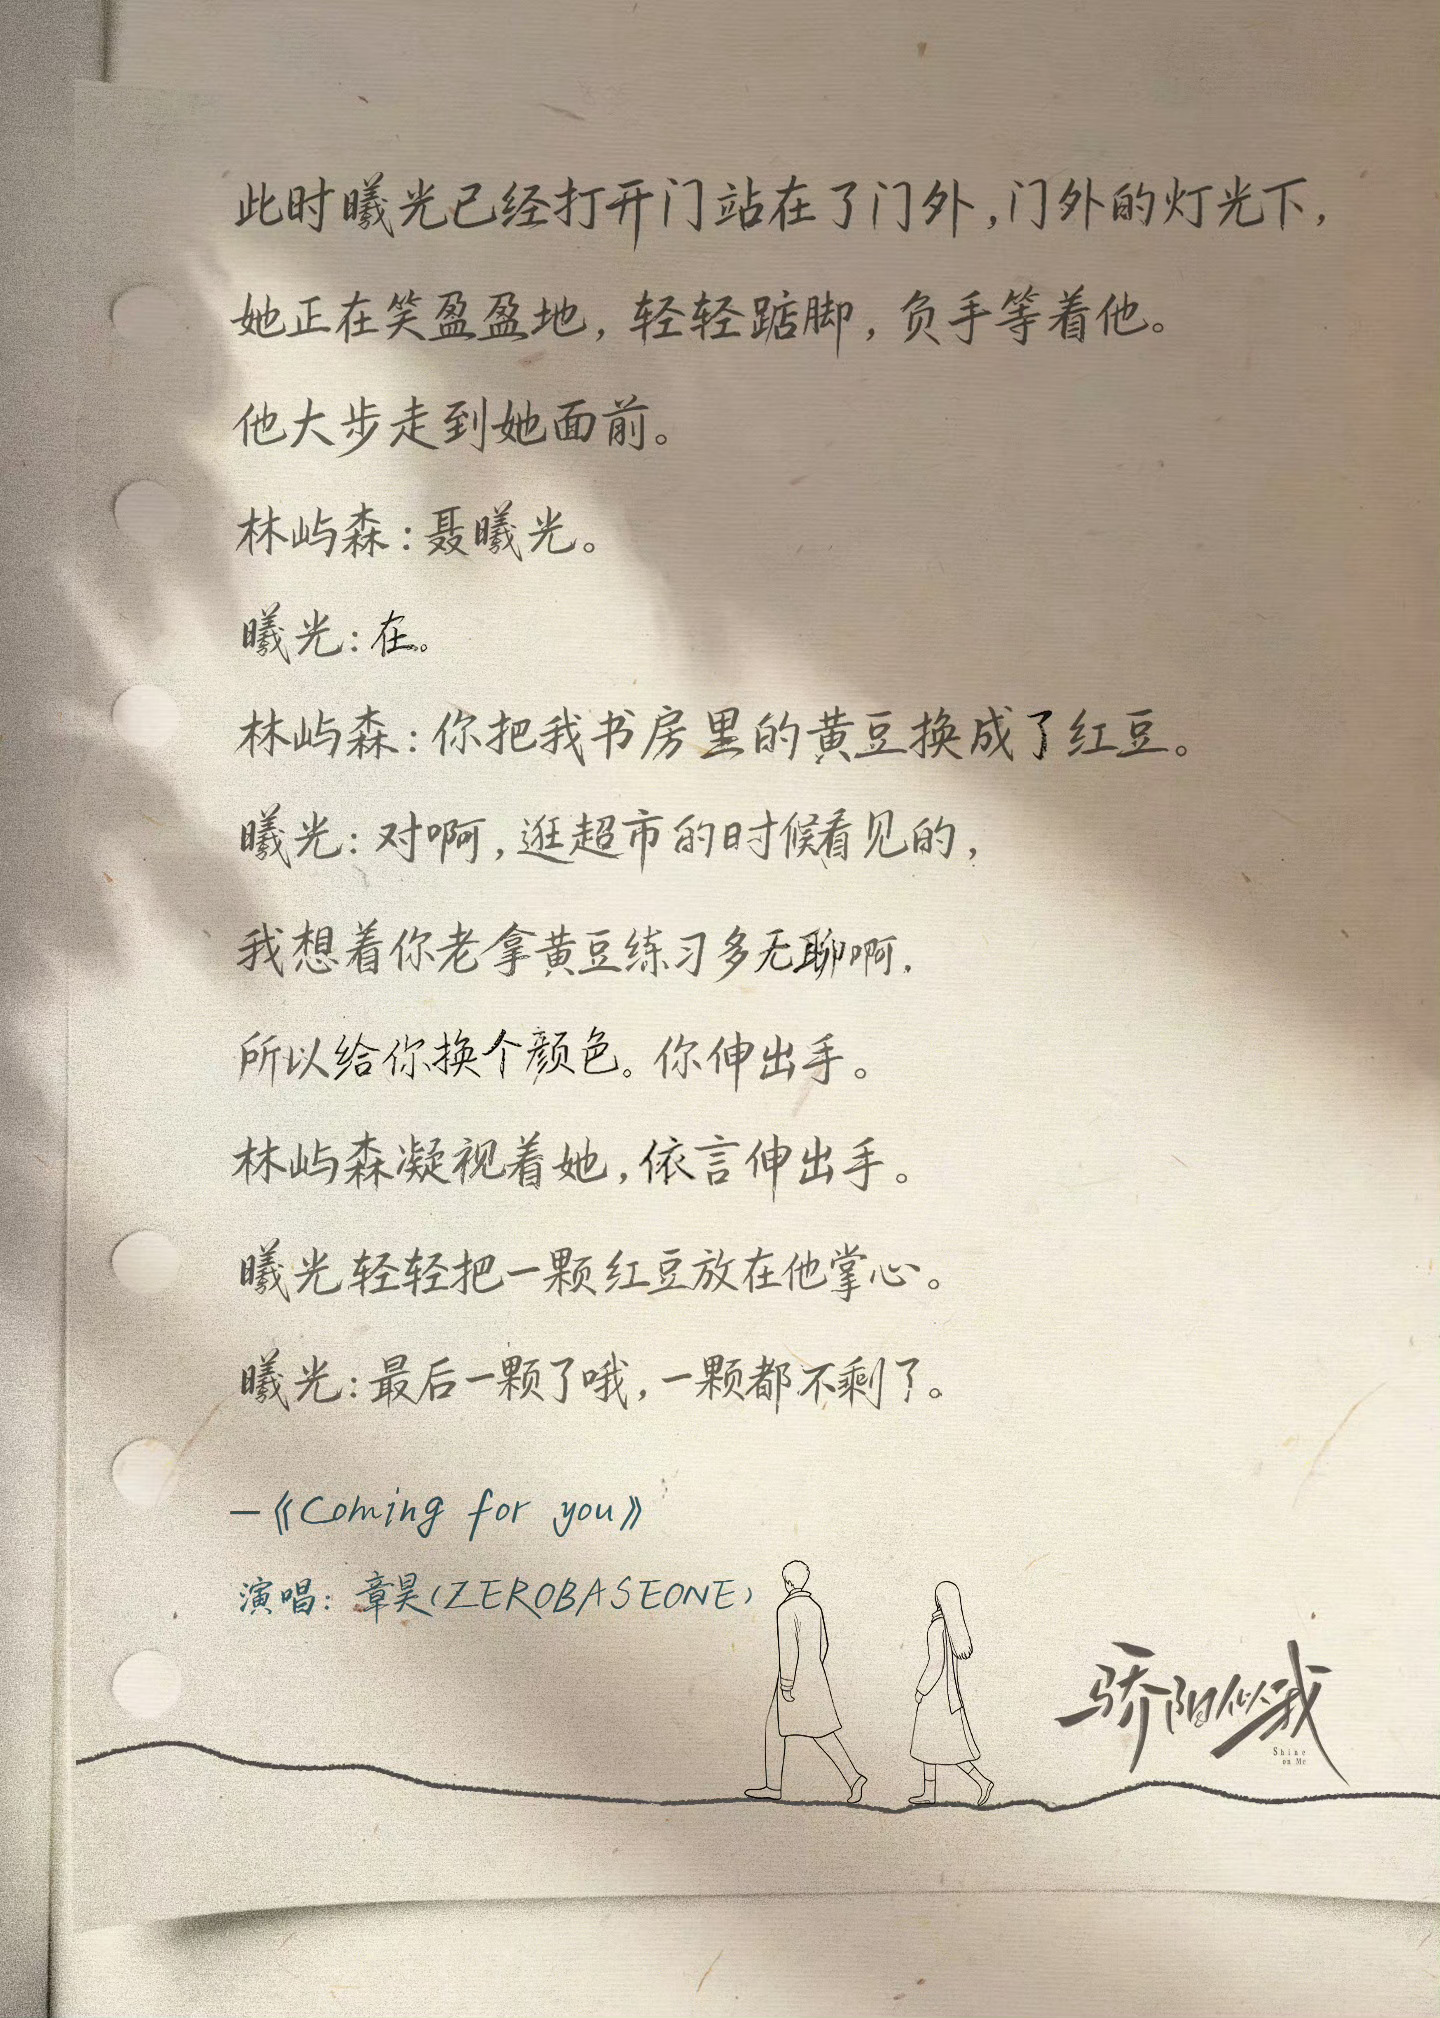 此时曦光已经打开门站在了门外,门外的灯光下,
她正在笑盈盈地,轻轻踮脚,负手等着他。
他大步走到她面前。
林屿森:聂曦光。
曦光:在。
林屿森:你把我书房里的黄豆换成了红豆。
曦光:对啊,逛超市的时候看见的,
我想着你老拿黄豆练习多无聊啊,
所以给你换个颜色。你伸出手。
林屿森凝视着她,依言伸出手。
曦光轻轻把一颗红豆放在他掌心。
曦光:最后一颗了哦,一颗都不剩了。
—《Coming for you》
演唱:章昊(ZEROBASEONE)
骄阳似我
Shine
on Me